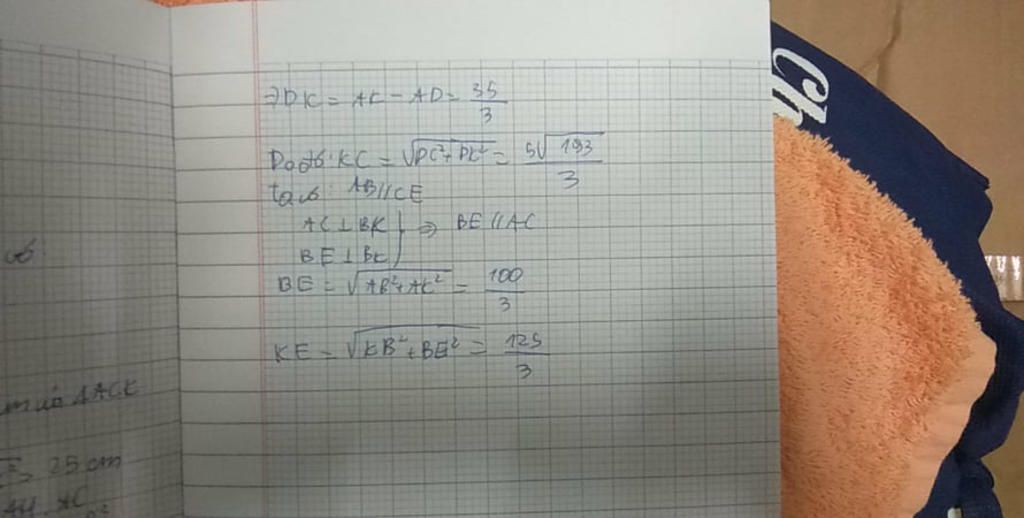 ⇒ DK = AK - AD = 35/3
Do đó: KC = √(DC²+DK²) = 5√193/3
ta có AB//CE
AC⊥BK } ⇒ BE//AC
BE⊥BK
BE = √(AB²+AK²) = 100/3
KE = √(KB²+BE²) = 125/3
có
ΔACK
25 cm
AH. AC
Ch